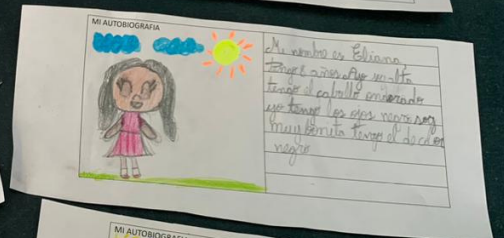 MI AUTOBIOGRAFIA
Mi nombre es Eliana,
tengo 8 años. Ayo soy alta
tengo el caballo ondorado
yo tengo los ojos negro soy
muy bonita tengo el de color
negro
MI AUTOBIOGRAFIA